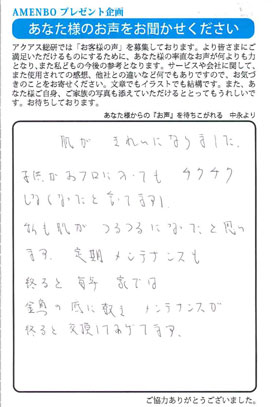 AMENBO プレゼント企画
あなた様のお声をお聞かせください
アクアス総研では「お客様の声」を募集しております。より皆さまにご
満足いただけるものにするために、あなた様の率直なお声が何よりも力
となり、また私どもの今後の参考となります。サービスや会社に関して、
また使用されての感想、他社との違いなど何でもありですので、お気づ
きのことをお寄せください。文章でもイラストでも結構です。また、あ
なた様ご自身、ご家族の写真も添えていただけるととってもうれしいで
す。お待ちしております。
あなた様からの『お声』を待ちこがれる 中永より
肌が きれいになりました。
子供がおフロに入っても チクチク
しなくなったと言てます!
私も肌がつるつるになったと思い
ます。定期メンテナンスも
終ると 家では
の底に敷き メンテナンスが
終ると 交換してあげてます。
ご協力ありがとうございました。